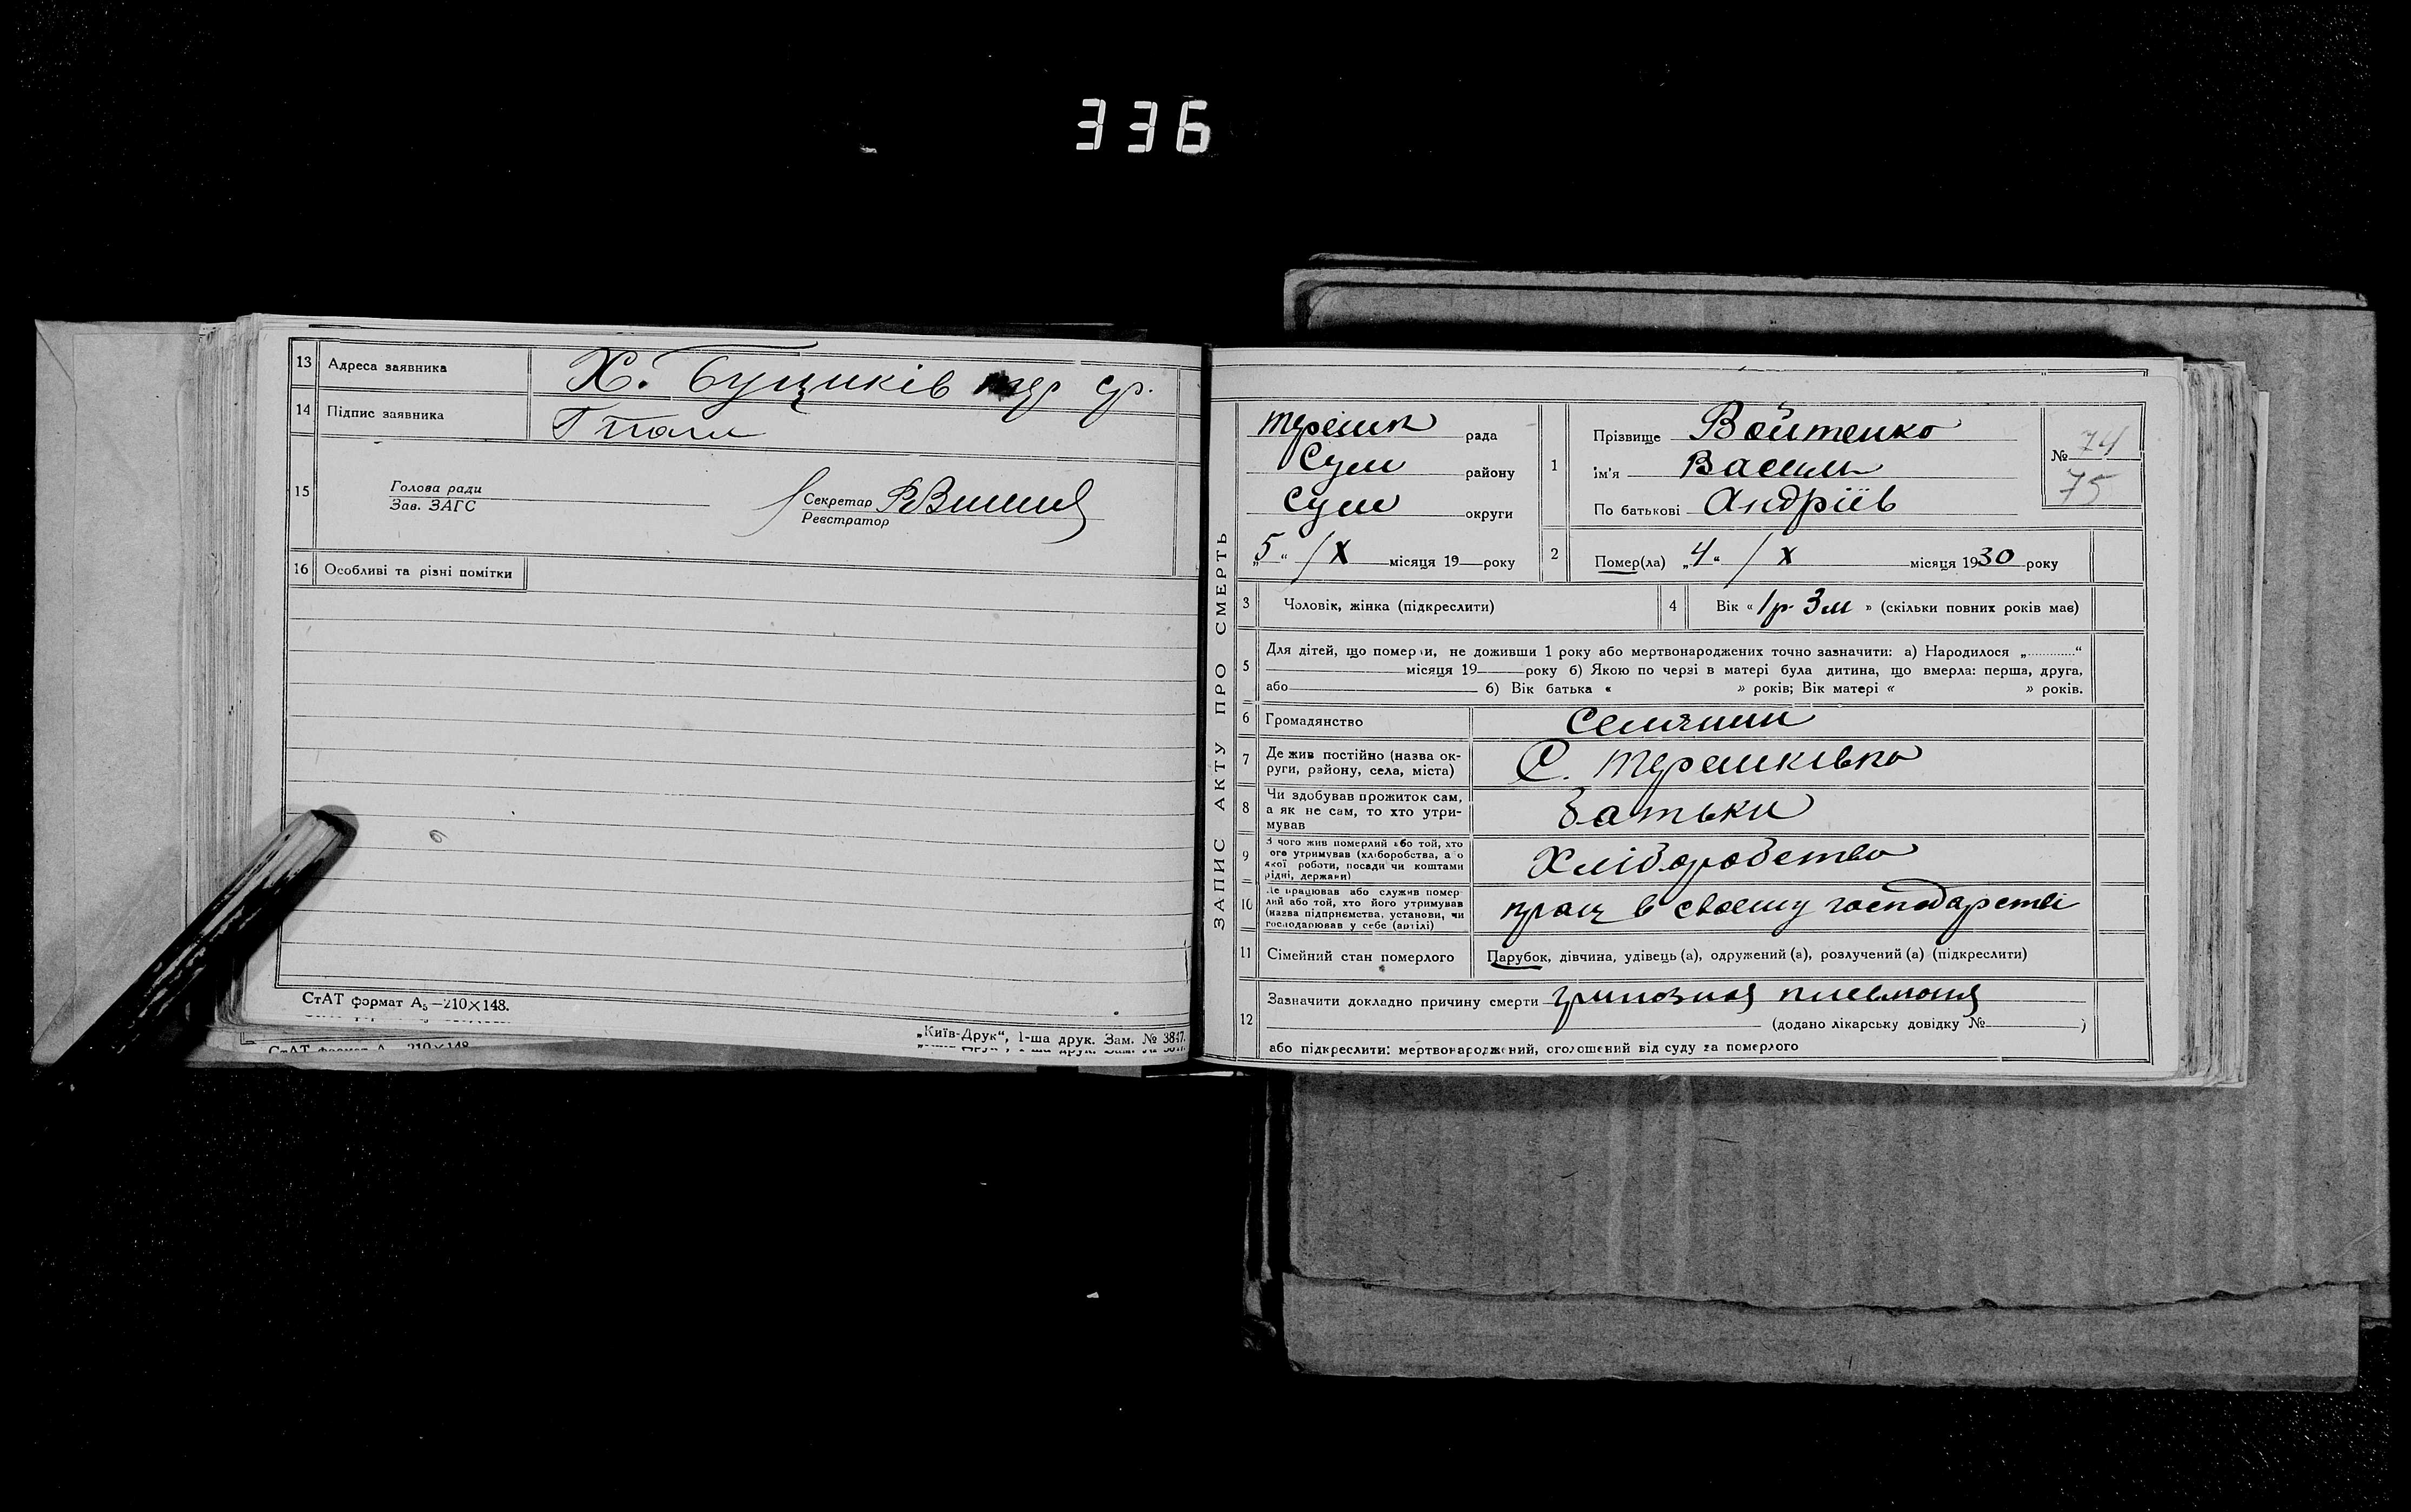 336
13 Адреса заявника Х. Буциків тер ср.
14 Підпис заявника
15 Голова ради
Зав. ЗАГС
Секретар
Реєстратор
16 Особливі та різні помітки
СтАТ формат А₅—210×148.
„Київ-Друк“, 1-ша друк. Зам. № 3847.
ЗАПИС АКТУ ПРО СМЕРТЬ
Терешк рада
Сум району
Сум округи
„5“ / X місяця 19 року
1 Прізвище Войтенко
ім'я Василь
По батькові Андріїв
№ 74
75
2 Помер(ла) „4“ / X місяця 1930 року
3 Чоловік, жінка (підкреслити)
4 Вік « 1 р 3 м » (скільки повних років має)
5 Для дітей, що померли, не доживши 1 року або мертвонароджених точно зазначити: а) Народилося „ “
місяця 19 року б) Якою по черзі в матері була дитина, що вмерла: перша, друга,
або б) Вік батька « » років; Вік матері « » років.
6 Громадянство Селянин
7 Де жив постійно (назва ок-
руги, району, села, міста) С. Терешківка
8 Чи здобував прожиток сам,
а як не сам, то хто утри-
мував батьки
9 З чого жив померлий або той, хто
його утримував (хліборобства, або
якої роботи, посади чи коштами
рідні, держави) Хліборобство
10 Де працював або служив помер-
лий або той, хто його утримував
(назва підприємства, установи, чи
господарював у себе (артілі) прац в своєму господарстві
11 Сімейний стан померлого Парубок, дівчина, удівець (а), одружений (а), розлучений (а) (підкреслити)
12 Зазначити докладно причину смерти грипозная пневмония
(додано лікарську довідку № )
або підкреслити: мертвонароджений, оголошений від суду за померлого